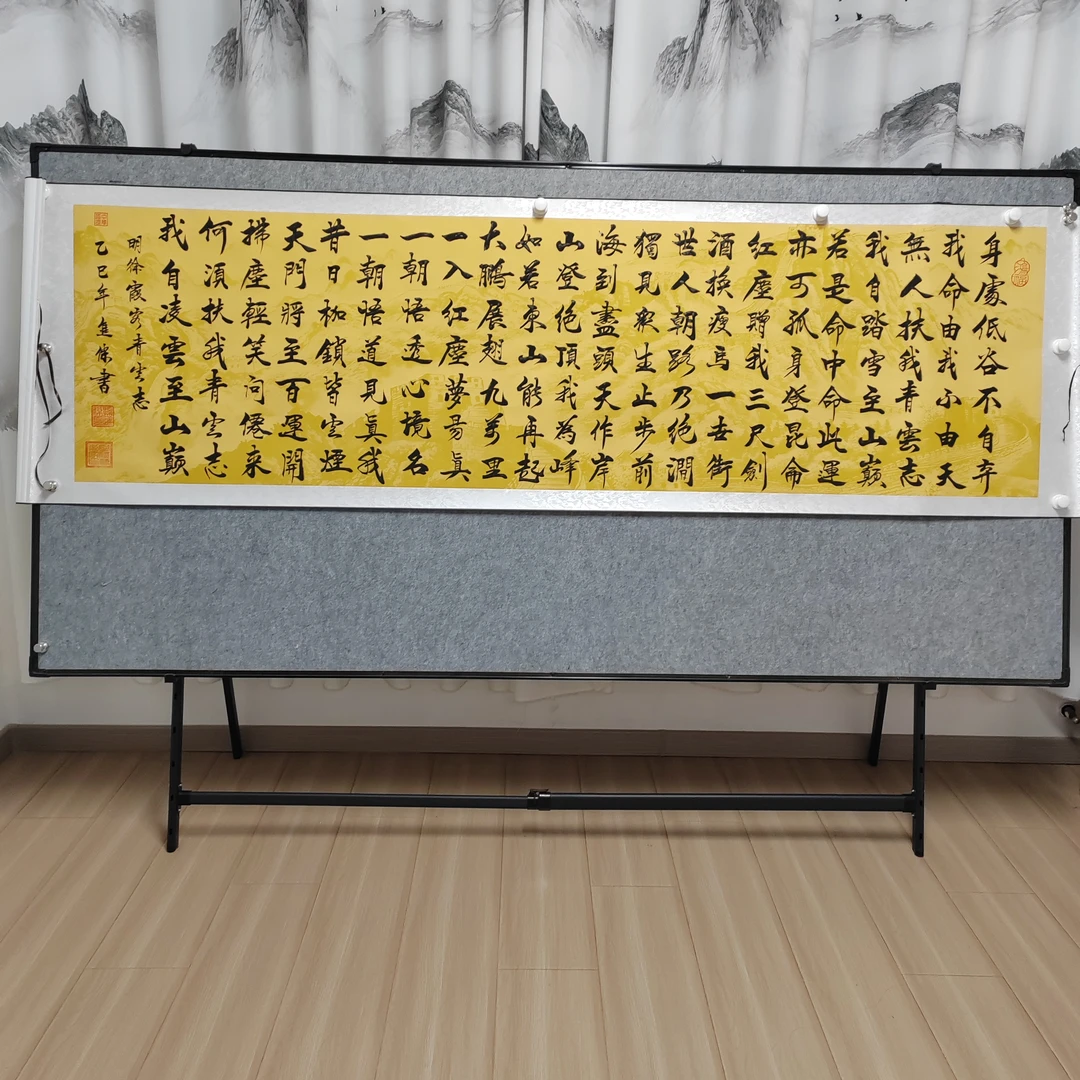 身處低谷不自弃
我命由我不由天
無人扶我青雲志
我自踏雪至山巔
若是命中命此運
亦可孤身登昆侖
紅塵贈我三尺劍
酒換瘦馬一世街
世人朝路乃絕澗
獨見衆生止步前
海到盡頭天作岸
山登絕頂我為峰
如若東山能再起
大鵬展翅九萬里
一入紅塵夢易真
一朝悟透心境名
一朝悟道見真我
昔日枷鎖皆雲煙
天門將至百運開
拂塵輕笑問僊来
何須扶我青雲志
我自凌雲至山巔
明徐霞客青雲志
乙巳年進保書